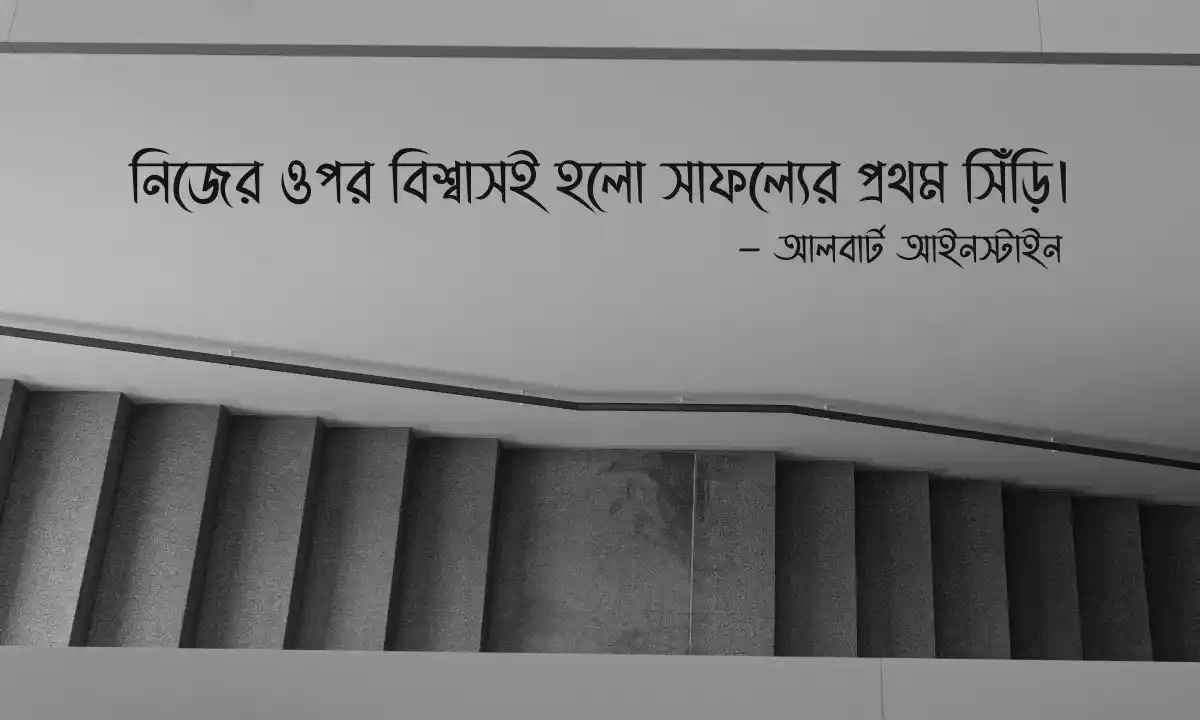 নিজের ওপর বিশ্বাসই হলো সাফল্যের প্রথম সিঁড়ি।
– আলবার্ট আইনস্টাইন